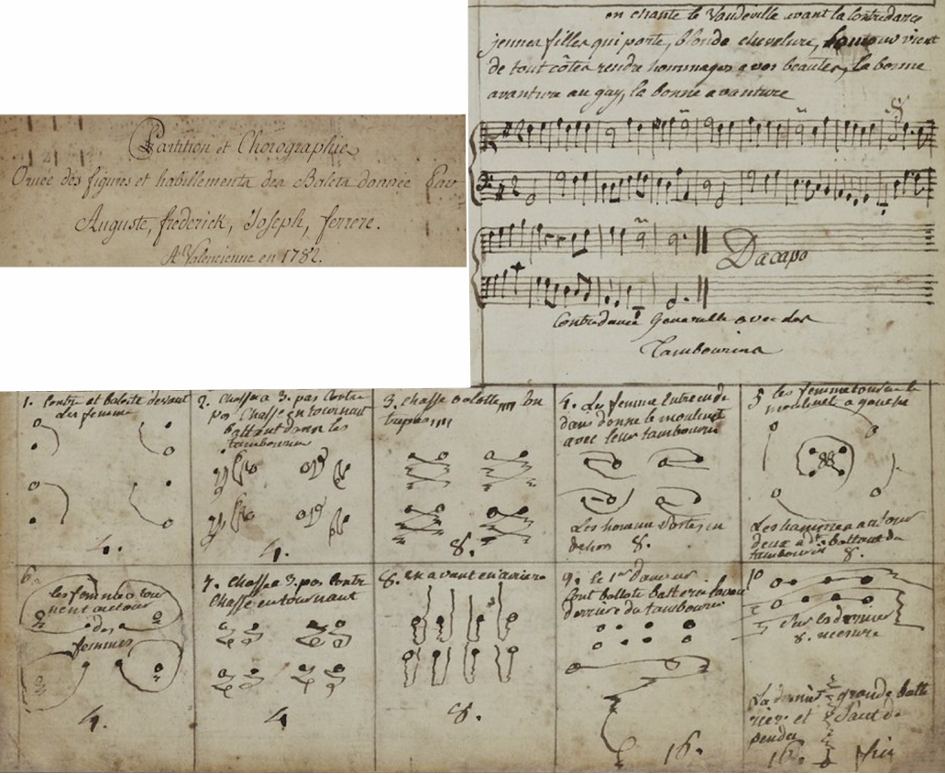 Partition et Chorographie
Ornée des figures et habillements des Balets donnée Par
Auguste, frederick, Joseph, ferrere.
A Valencienne en 1782.
on chante le Vaudeville avant la Contredance
jennes filles qui porte, blonde chevelure, lamour vient
de tout côtés rendre hommages a vos beautes, la bonne
avanture au gay, la bonne avanture
Dacapo
Contredance Generalle avec des
Tambourins
1. Contre et balote devant
des femme
4.
2. Chasse a 3. pas Contre
pas Chasse en tournant
battant dans les
tambourins
4.
3. chasse balotte
8.
4. Les femme Entre en de
dans donne le moulinet
avec leur tambourin
Les homme Sortes en
dehors 8.
5 les femme tourne le
moulinet a gauche
Les hommes autour
battant du
tambourin 8.
6.
les femmes tour
nent autour
des
femmes
4.
7. Chasse a 3. pas Contre
Chasse en tournant
4
8. en avant en arriere
8.
9. Le 1er danseur
font ballote battem
derriere du tambourin
16.
10
Sur la dernier
8. mesure
La dernier grande balle
et Saut de
pendu
16. fin